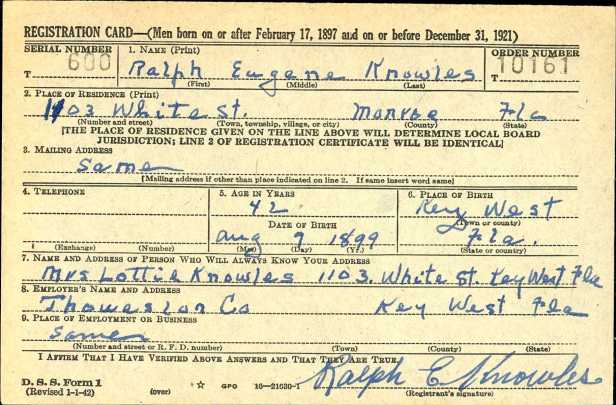 REGISTRATION CARD—(Men born on or after February 17, 1897 and on or before December 31, 1921)
SERIAL NUMBER 1. NAME (Print) ORDER NUMBER
T 600 Ralph Eugene Knowles T 10161
(First) (Middle) (Last)
2. PLACE OF RESIDENCE (Print)
1103 White St. Monroe Fla
(Number and street) (Town, township, village, or city) (County) (State)
[THE PLACE OF RESIDENCE GIVEN ON THE LINE ABOVE WILL DETERMINE LOCAL BOARD
JURISDICTION; LINE 2 OF REGISTRATION CERTIFICATE WILL BE IDENTICAL]
3. MAILING ADDRESS
Same
[Mailing address if other than place indicated on line 2. If same insert word same]
4. TELEPHONE 5. AGE IN YEARS 6. PLACE OF BIRTH
42 Key West
DATE OF BIRTH (Town or county)
Aug 9 1899 Fla.
(Exchange) (Number) (Mo.) (Day) (Yr.) (State or country)
7. NAME AND ADDRESS OF PERSON WHO WILL ALWAYS KNOW YOUR ADDRESS
Mrs Lottie Knowles 1103. White St. Key West Fla
8. EMPLOYER'S NAME AND ADDRESS
Co Key West Fla
9. PLACE OF EMPLOYMENT OR BUSINESS
Same
(Number and street or R. F. D. number) (Town) (County) (State)
I AFFIRM THAT I HAVE VERIFIED ABOVE ANSWERS AND THAT THEY ARE TRUE.
Ralph E. Knowles
D. S. S. Form 1
(Revised 1-1-42) (over) ☆ GPO 16—21630-1 (Registrant's signature)